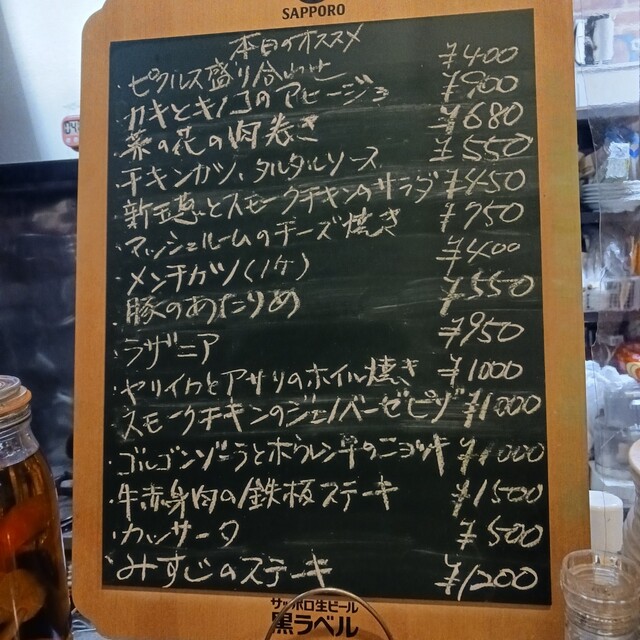 SAPPORO
本日のオススメ
・ピクルス盛り合わせ ¥400
・カキとキノコのアヒージョ ¥900
・菜の花の肉巻き ¥680
・チキンカツ、タルタルソース ¥550
・新玉葱とスモークチキンのサラダ ¥450
・マッシュルームのチーズ焼き ¥950
・メンチカツ(1ケ) ¥400
・豚のあたりめ ¥550
・ラザニア ¥950
・ヤリイカとアサリのホイル焼き ¥1000
・スモークチキンのジェノベーゼピザ ¥1000
・ゴルゴンゾーラとホウレン草のニョッキ ¥1000
・牛赤身肉の鉄板ステーキ ¥1500
・カッサータ ¥500
・みすじのステーキ ¥1200
サッポロ生ビール
黒ラベル